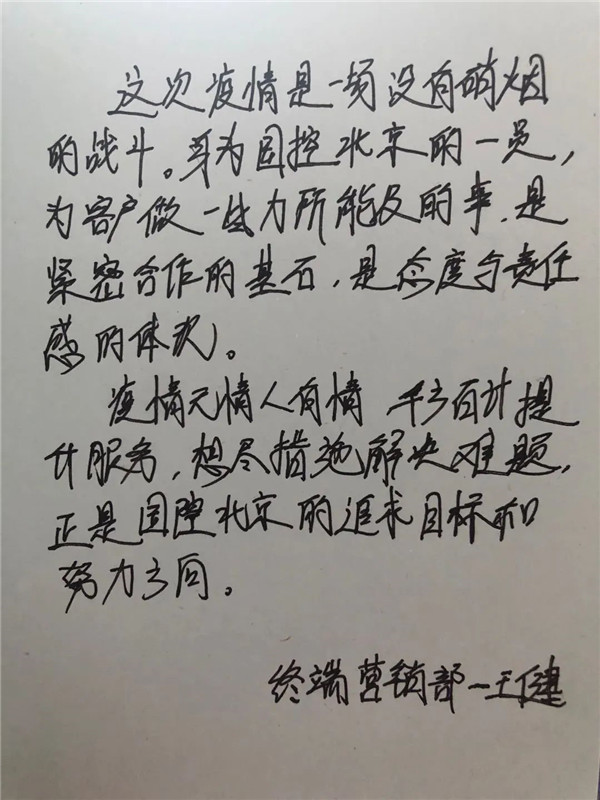 这次疫情是一场没有硝烟
的战斗。身为国控北京的一员，
为客户做一些力所能及的事，是
紧密合作的基石，是态度与责任
感的体现。
疫情无情人有情，千方百计提
升服务，想尽措施解决难题，
正是国控北京的追求目标和
努力方向。
终端营销部—王健